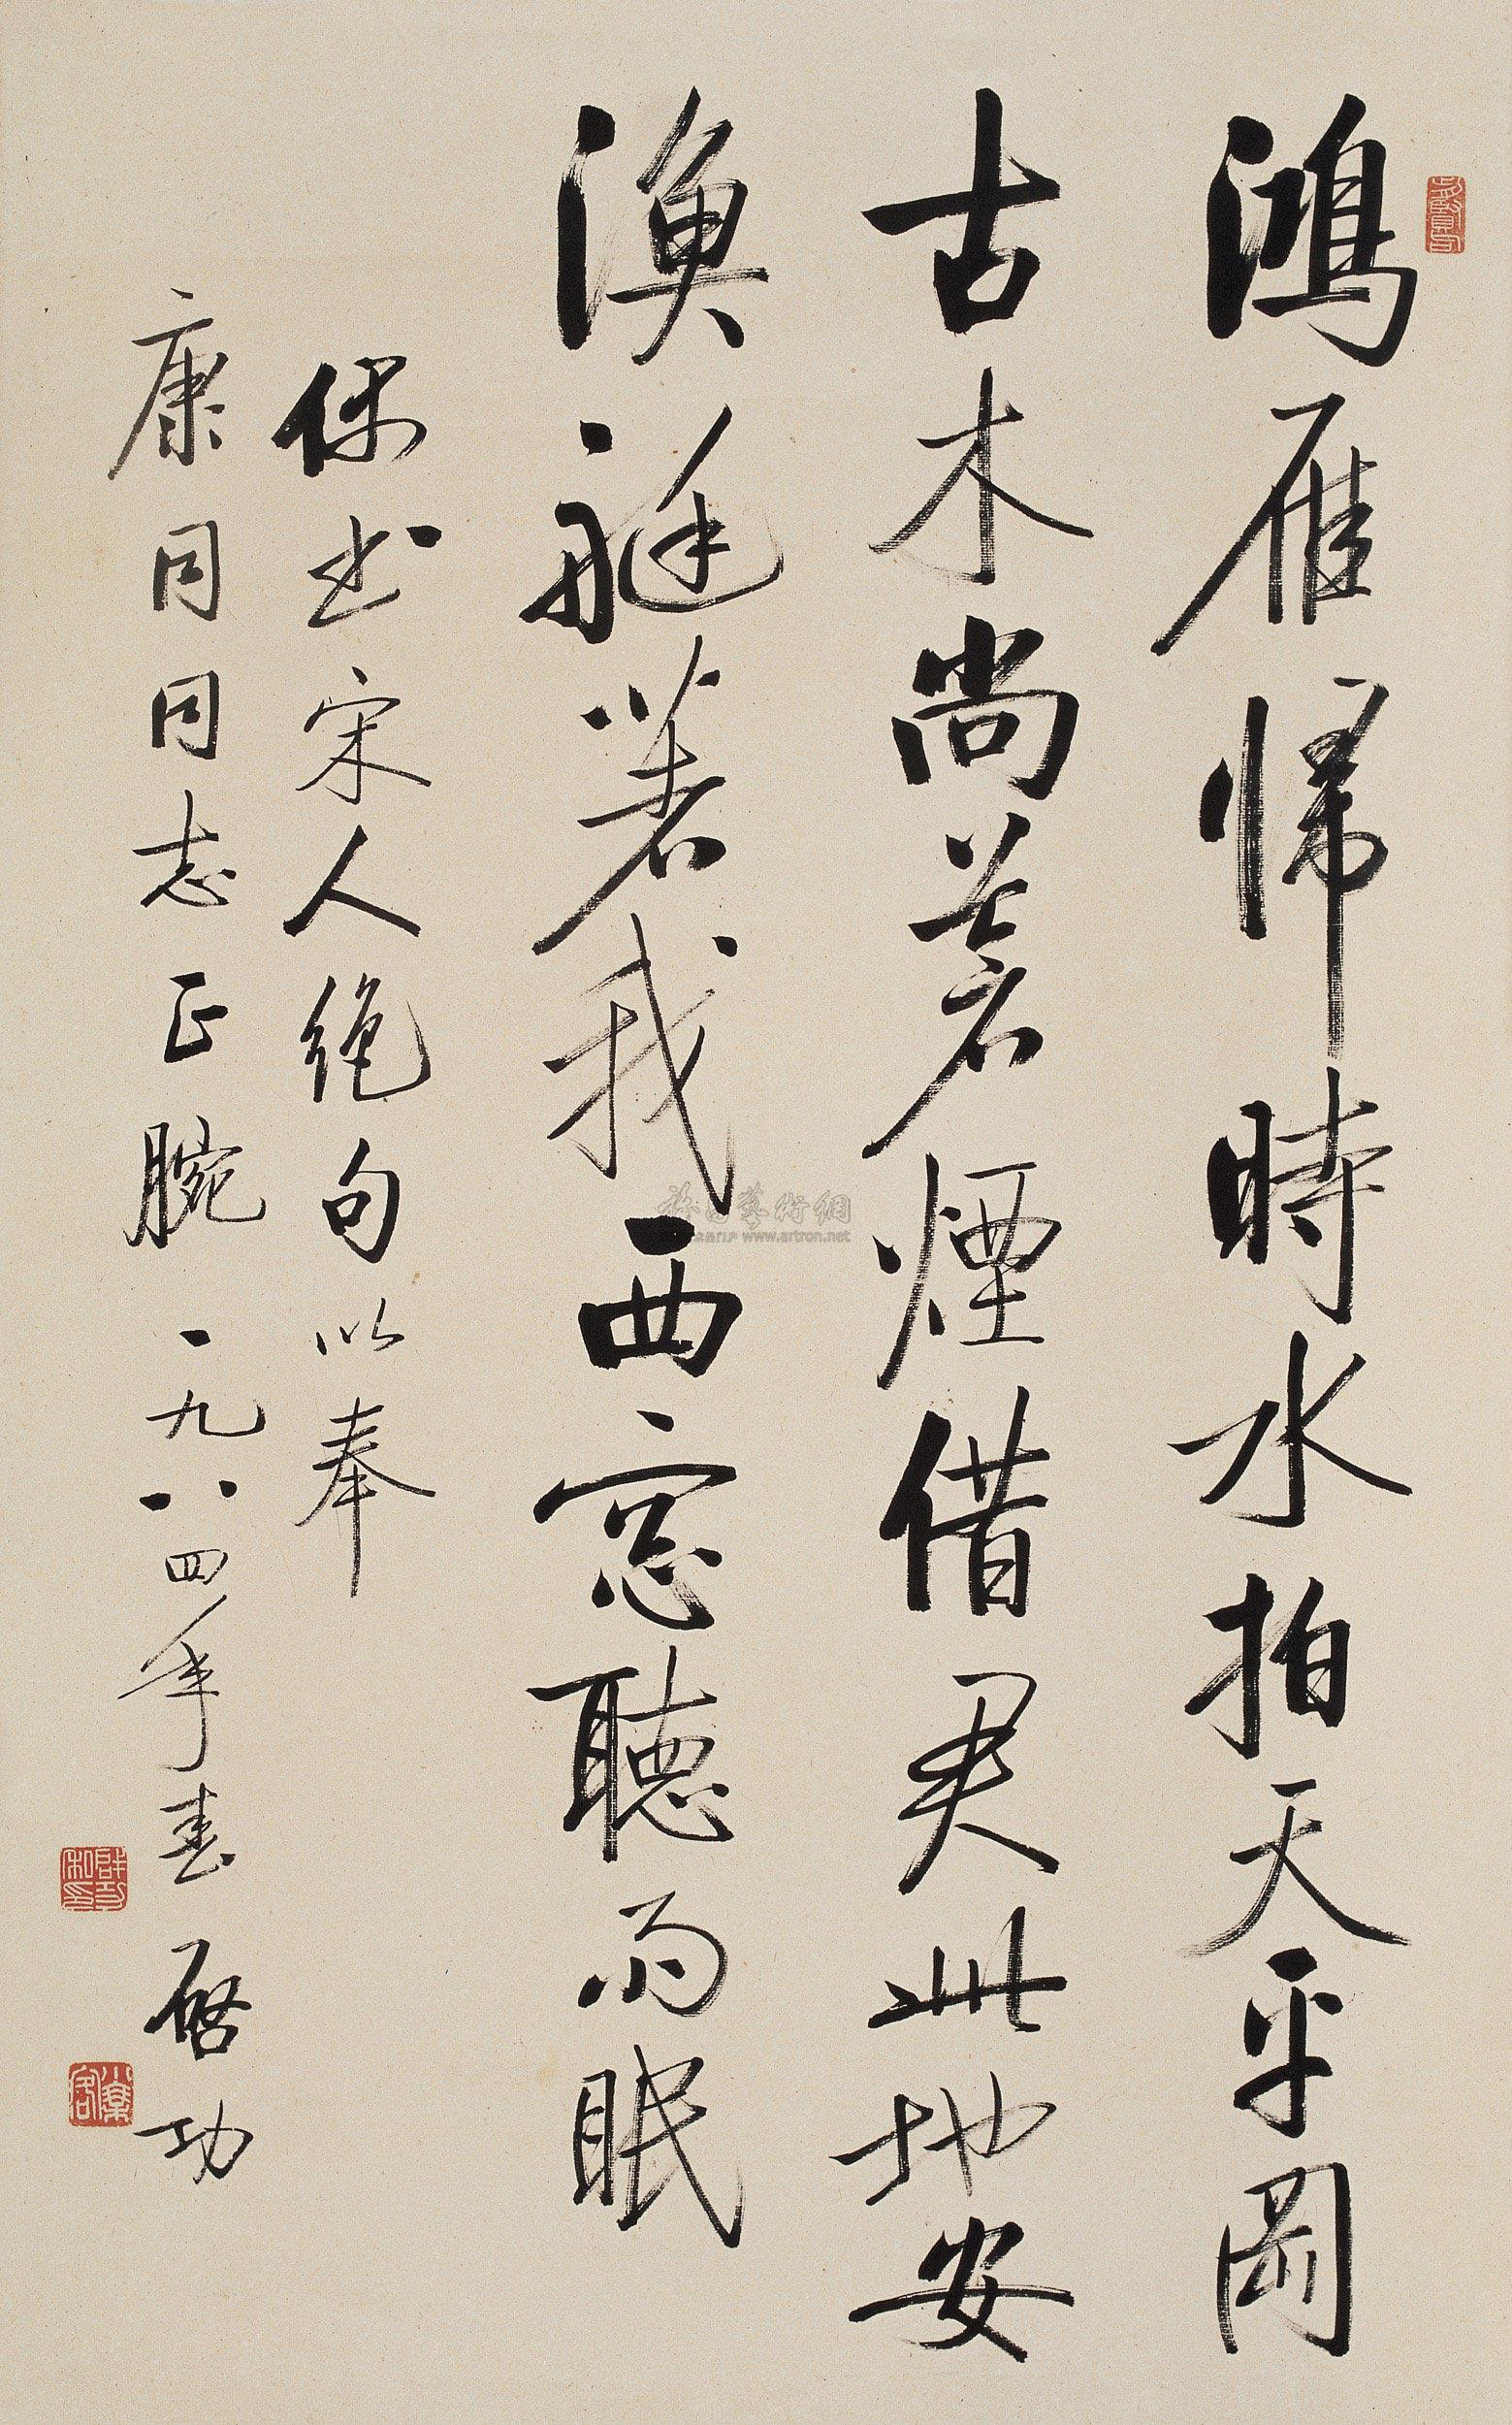 鴻雁歸時水拍天平岡
古木尚蒼煙借君此地安
漁艇著我西窓聽雨眠
偶書宋人絶句以奉
康同同志正腕一九八四年春啓功
www.artron.net